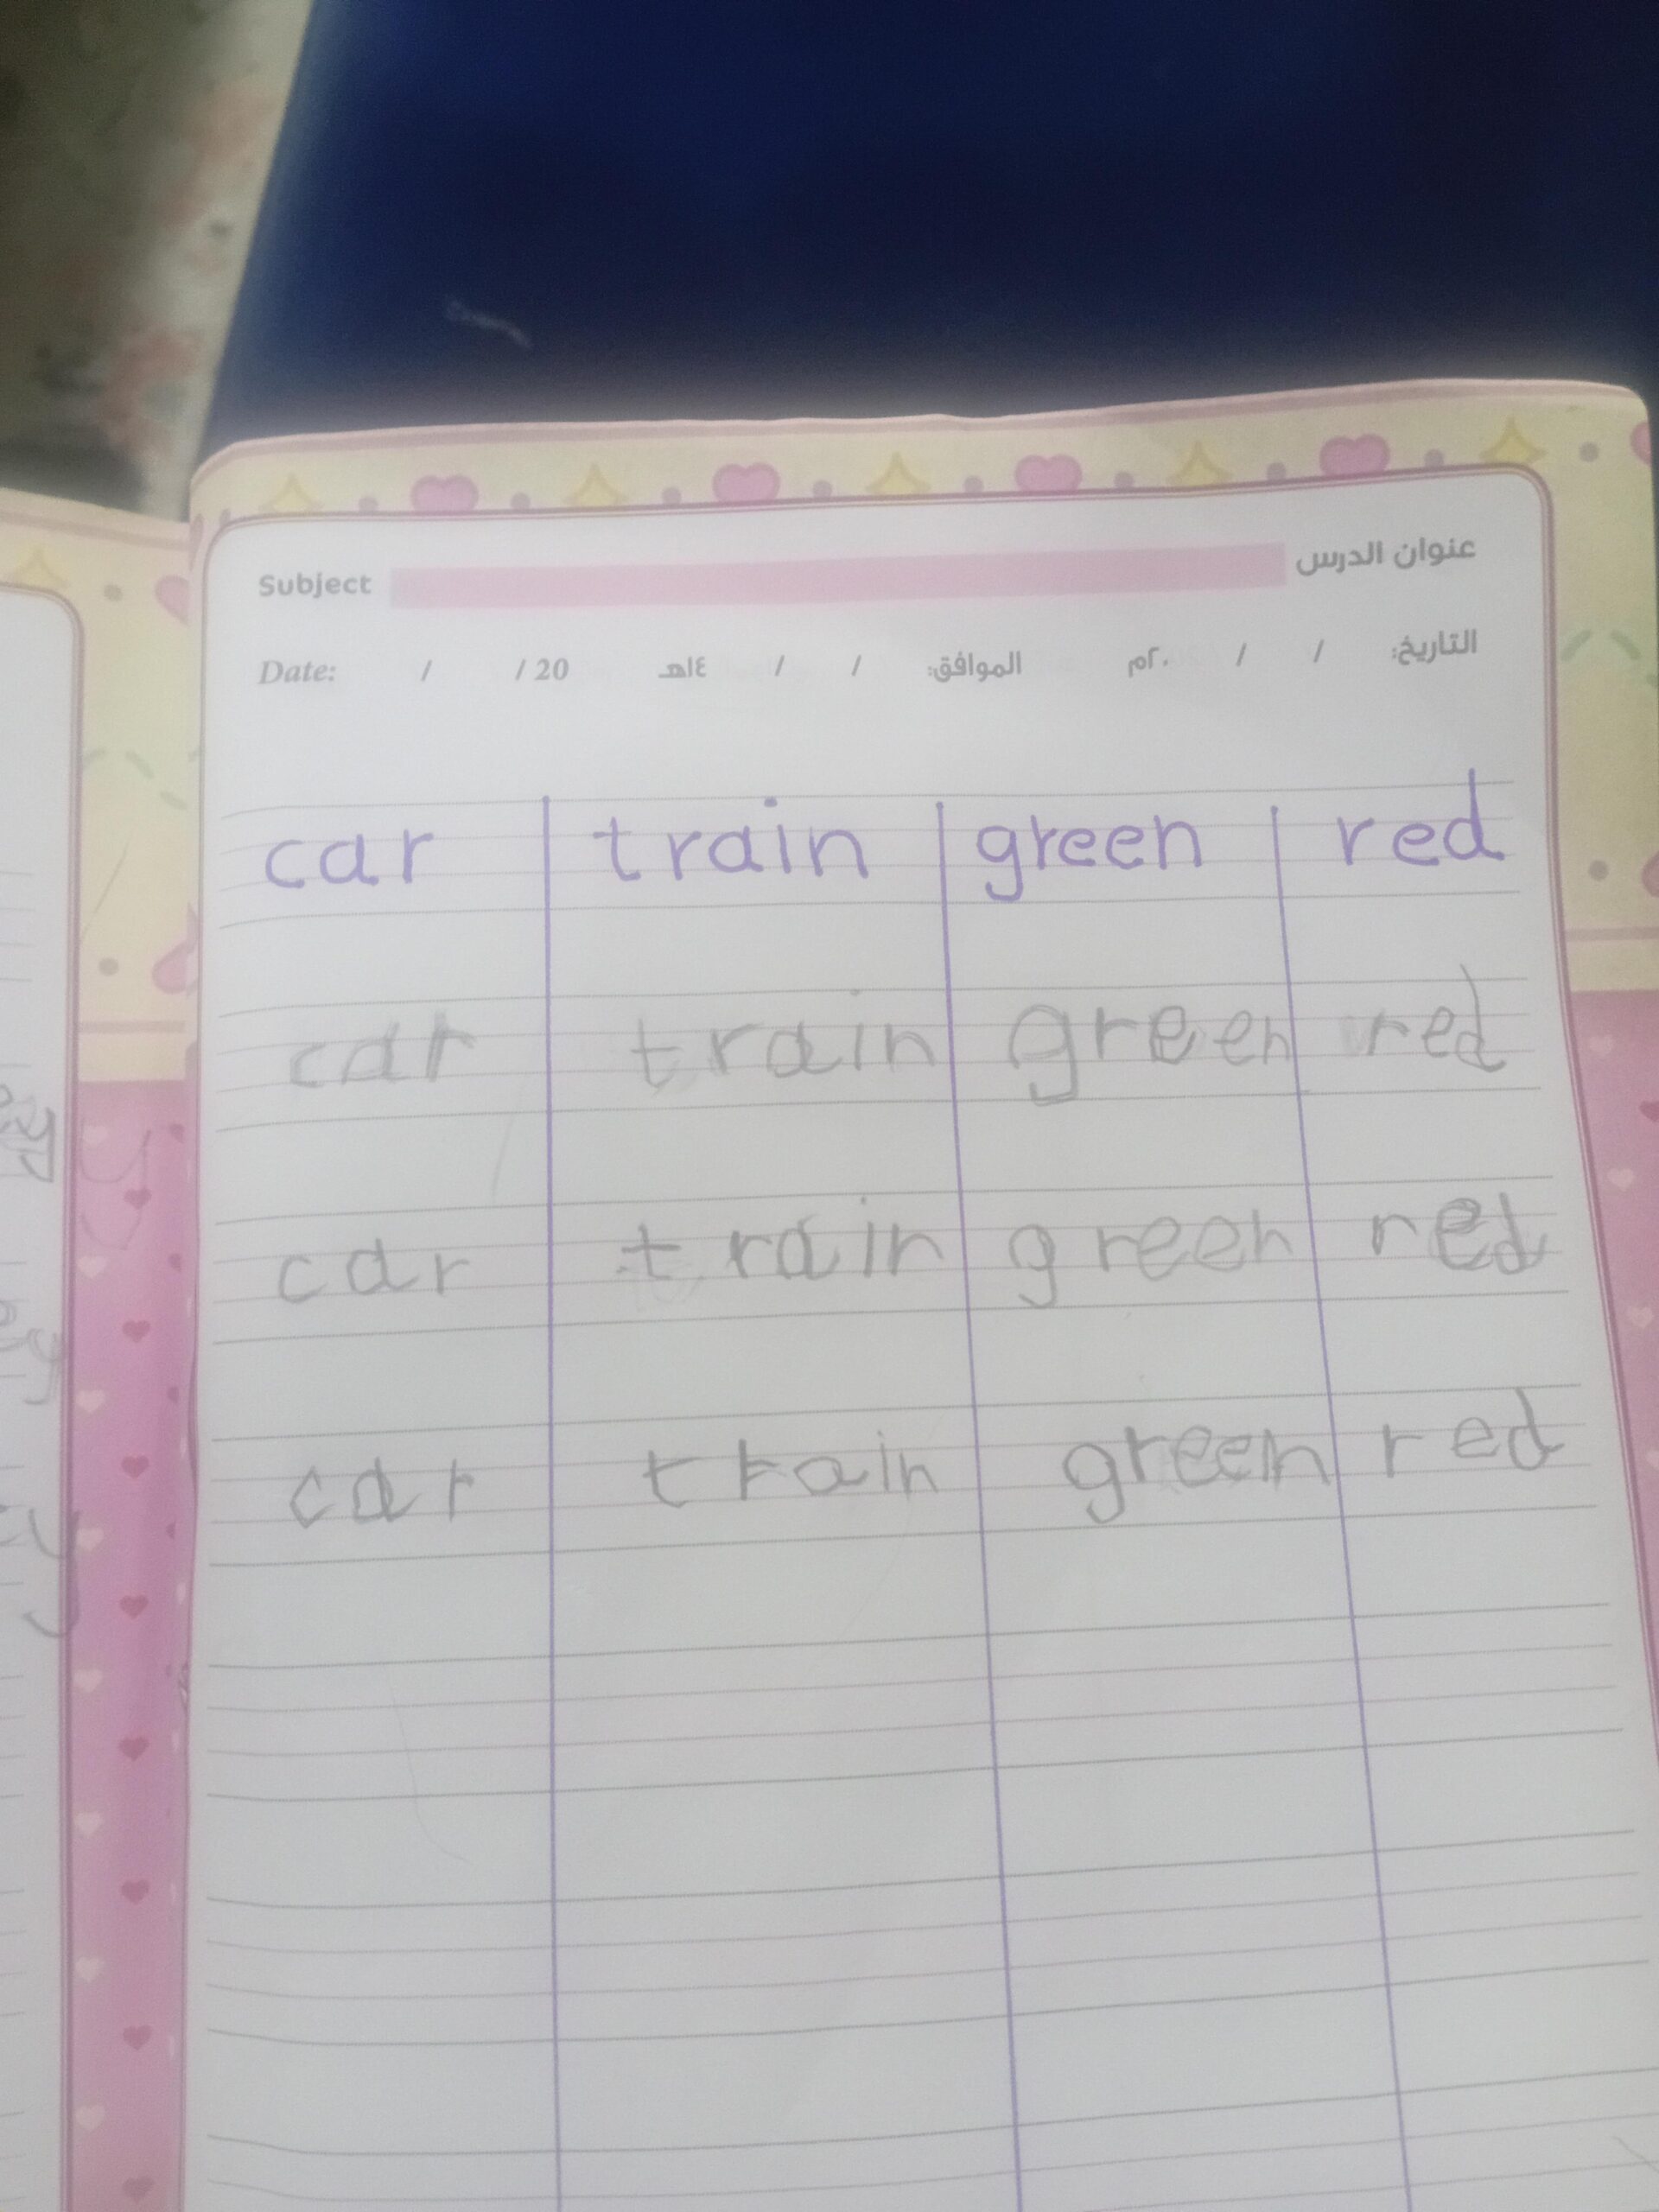 Subject عنوان الدرس
Date: / / 20 ١٤هـ / / الموافق: ٢٠م / / التاريخ:
car train green red
car train green red
car train green red
car train green red